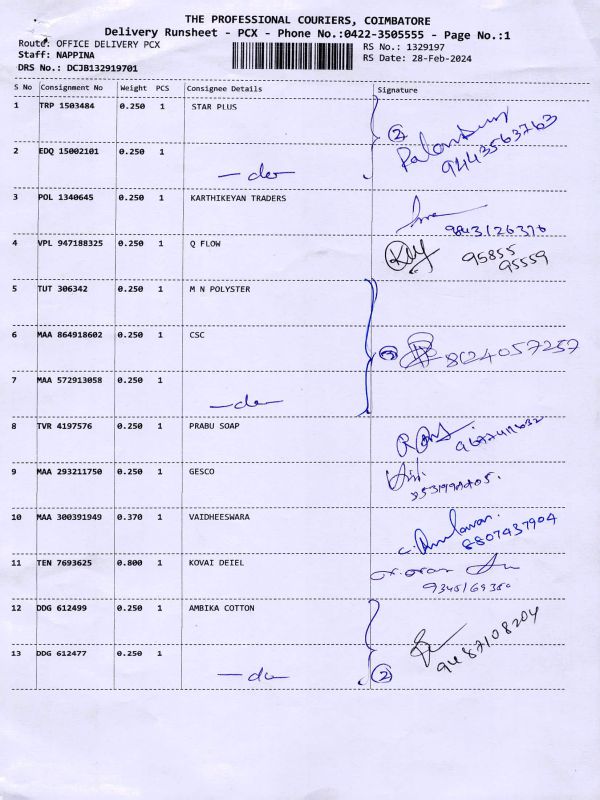 THE PROFESSIONAL COURIERS, COIMBATORE
Delivery Runsheet - PCX - Phone No.:0422-3505555 - Page No.:1
Route: OFFICE DELIVERY PCX
RS No.: 1329197
Staff: NAPPINA
RS Date: 28-Feb-2024
DRS No.: DCJB132919701
S No Consignment No Weight PCS Consignee Details Signature
1 TRP 1503484 0.250 1 STAR PLUS
2 9443563763
2 EDQ 15002101 0.250 1
3 POL 1340645 0.250 1 KARTHIKEYAN TRADERS
9843126376
4 VPL 947188325 0.250 1 Q FLOW
95855
95559
5 TUT 306342 0.250 1 M N POLYSTER
6 MAA 864918602 0.250 1 CSC
3 8124057257
7 MAA 572913058 0.250 1
8 TVR 4197576 0.250 1 PRABU SOAP
9 MAA 293211750 0.250 1 GESCO
10 MAA 300391949 0.370 1 VAIDHEESWARA
8807437904
11 TEN 7693625 0.800 1 KOVAI DEIEL
12 DDG 612499 0.250 1 AMBIKA COTTON
9487108204
13 DDG 612477 0.250 1
2